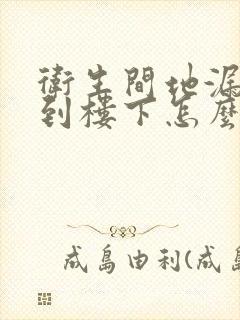 衛生間地漏
到樓下怎麼
成島由利(成島